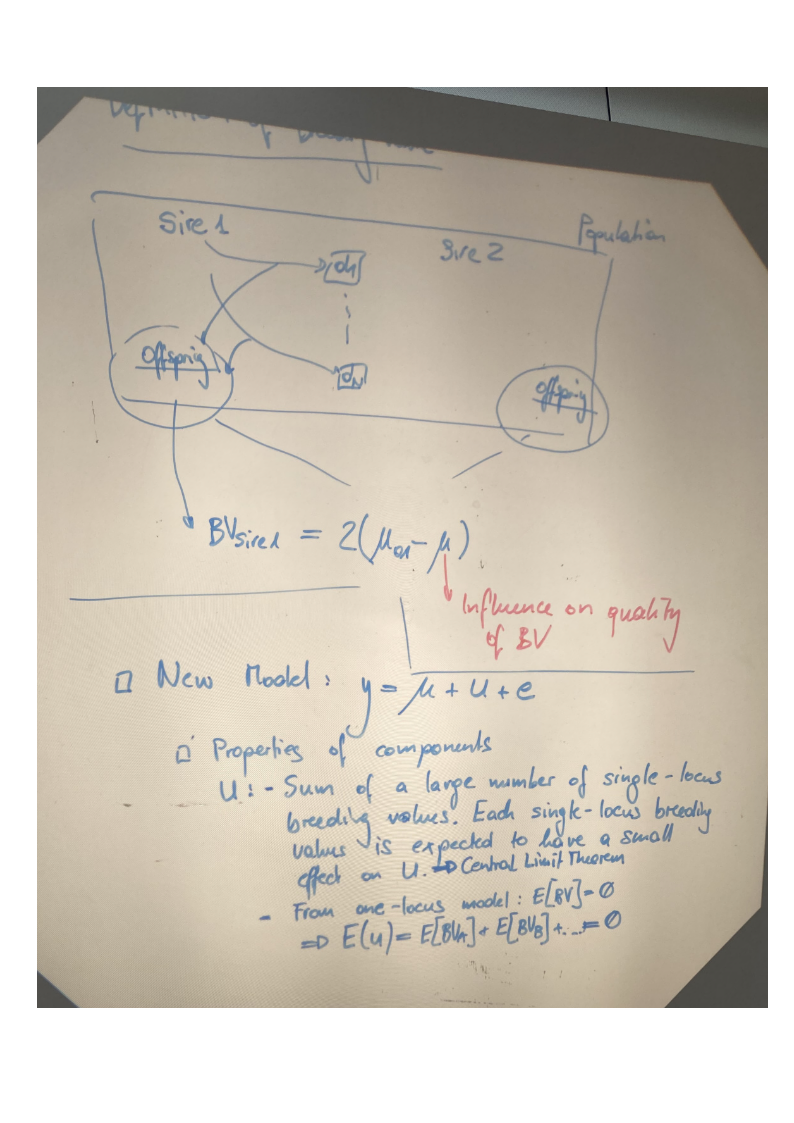 Definition of Breeding Value
Sire 1
Sire 2
Population
d1
Offspring
dN
Offspring
BVsire1 = 2(μO1 - μ)
Influence on quality
of BV
□ New Model: y = μ + u + e
□ Properties of components
U: - Sum of a large number of single-locus
breeding values. Each single-locus breeding
values is expected to have a small
effect on U. ⇒ Central Limit Theorem
- From one-locus model: E[BV] = 0
⇒ E(u) = E[BVA] + E[BVB] + ... = 0